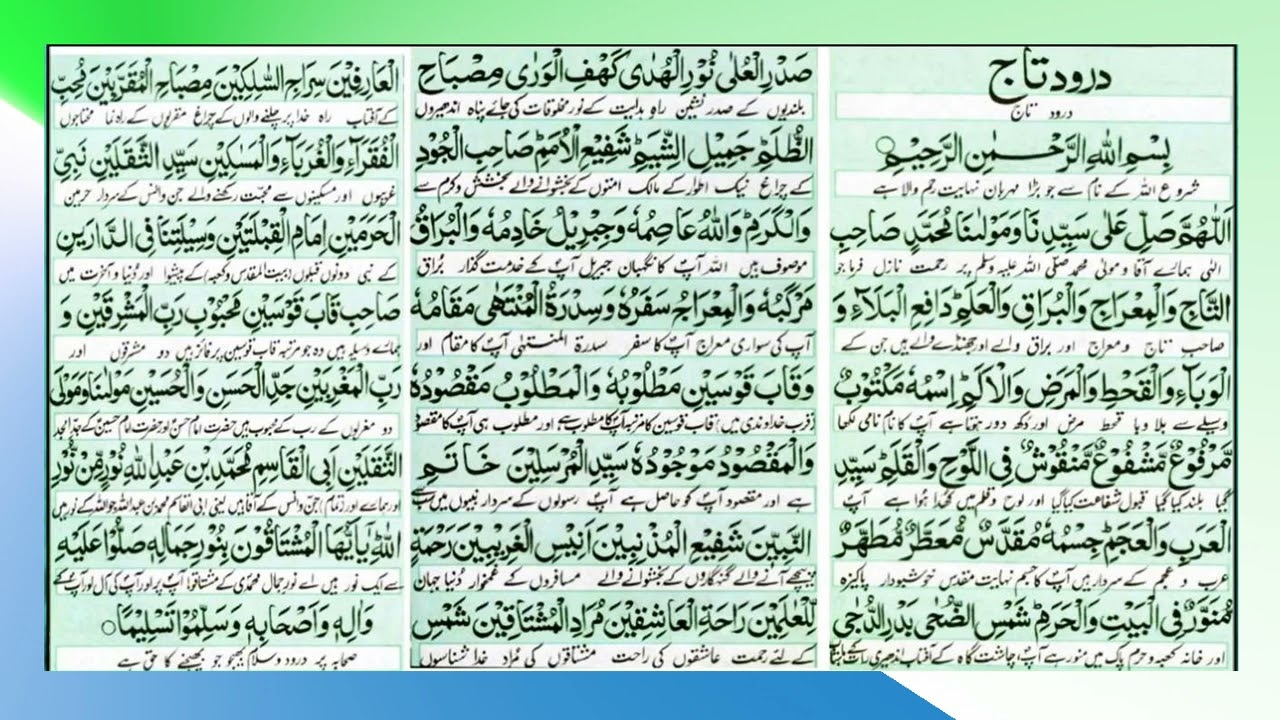 درود تاج
درود تاج
بِسْمِ اللهِ الرَّحْمٰنِ الرَّحِيْمِ
شروع اللہ کے نام سے جو بڑا مہربان نہایت رحم والا ہے
اَللّٰهُمَّ صَلِّ عَلٰى سَيِّدِنَا وَمَوْلٰنَا مُحَمَّدٍ صَاحِبِ
الٰہی ہمارے آقا و مولیٰ محمد صلی اللہ علیہ وسلم پر رحمت نازل فرما جو
التَّاجِ وَالْمِعْرَاجِ وَالْبُرَاقِ وَالْعَلَمِ دَافِعِ الْبَلَاءِ وَ
صاحب تاج و معراج اور براق والے اور جھنڈے والے ہیں جن کے
الْوَبَاءِ وَالْقَحْطِ وَالْمَرَضِ وَالْاَلَمِ اِسْمُهٗ مَكْتُوْبٌ
وسیلے سے بلا وبا قحط مرض اور دکھ دور ہوتا ہے آپ کا نام نامی لکھا
مَّرْفُوْعٌ مَّشْفُوْعٌ مَّنْقُوْشٌ فِى اللَّوْحِ وَالْقَلَمِ سَيِّدِ
گیا بلند کیا گیا قبول شفاعت کیا گیا اور لوح و قلم میں کھدا ہوا ہے آپ
الْعَرَبِ وَالْعَجَمِ جِسْمُهٗ مُقَدَّسٌ مُّعَطَّرٌ مُّطَهَّرٌ
عرب و عجم کے سردار ہیں آپ کا جسم نہایت مقدس خوشبودار پاکیزہ
مُّنَوَّرٌ فِى الْبَيْتِ وَالْحَرَمِ شَمْسِ الضُّحٰى بَدْرِ الدُّجٰى
اور خانہ کعبہ و حرم پاک میں منور ہے آپ چاشت گاہ کے آفتاب اندھیری رات کے
صَدْرِ الْعُلٰى نُوْرِ الْهُدٰى كَهْفِ الْوَرٰى مِصْبَاحِ
بلندیوں کے صدر نشین راہ ہدایت کے نور مخلوقات کی جائے پناہ اندھیروں
الظُّلَمِ جَمِيْلِ الشِّيَمِ شَفِيْعِ الْاُمَمِ صَاحِبِ الْجُوْدِ
کے چراغ نیک اطوار کے مالک امتوں کے بخشوانے والے بخشش و کرم سے
وَالْكَرَمِ وَاللهُ عَاصِمُهٗ وَجِبْرِيْلُ خَادِمُهٗ وَالْبُرَاقُ
موصوف ہیں اللہ آپ کا نگہبان جبریل آپ کے خدمت گذار براق
مَرْكَبُهٗ وَالْمِعْرَاجُ سَفَرُهٗ وَسِدْرَةُ الْمُنْتَهٰى مَقَامُهٗ
آپ کی سواری معراج آپ کا سفر سدرۃ المنتہیٰ آپ کا مقام اور
وَقَابَ قَوْسَيْنِ مَطْلُوْبُهٗ وَالْمَطْلُوْبُ مَقْصُوْدُهٗ
(قرب خداوندی میں) قاب قوسین کا مرتبہ آپ کا مطلوب ہے اور مطلوب ہی آپ کا مقصود
وَالْمَقْصُوْدُ مَوْجُوْدُهٗ سَيِّدِ الْمُرْسَلِيْنَ خَاتَمِ
ہے اور مقصود آپ کو حاصل ہے آپ رسولوں کے سردار نبیوں میں سے
النَّبِيِّيْنَ شَفِيْعِ الْمُذْنِبِيْنَ اَنِيْسِ الْغَرِيْبِيْنَ رَحْمَةٍ
پیچھے آنے والے گنہگاروں کے بخشوانے والے مسافروں کے غمخوار دنیا جہان
لِّلْعٰلَمِيْنَ رَاحَةِ الْعَاشِقِيْنَ مُرَادِ الْمُشْتَاقِيْنَ شَمْسِ
کے لئے رحمت عاشقوں کی راحت مشتاقوں کی مراد خدا شناسوں
الْعَارِفِيْنَ سِرَاجِ السَّالِكِيْنَ مِصْبَاحِ الْمُقَرَّبِيْنَ مُحِبِّ
کے آفتاب راہ خدا پر چلنے والوں کے چراغ مقربوں کے راہ نما محتاجوں
الْفُقَرَاءِ وَالْغُرَبَاءِ وَالْمَسٰكِيْنِ سَيِّدِ الثَّقَلَيْنِ نَبِيِّ
غریبوں اور مسکینوں سے محبت رکھنے والے جن و انس کے سردار حرمین
الْحَرَمَيْنِ اِمَامِ الْقِبْلَتَيْنِ وَسِيْلَتِنَا فِى الدَّارَيْنِ
کے نبی دونوں قبلوں (بیت المقدس و کعبہ) کے پیشوا اور دنیا و آخرت میں
صَاحِبِ قَابَ قَوْسَيْنِ مَحْبُوْبِ رَبِّ الْمَشْرِقَيْنِ وَ
ہمارے وسیلہ ہیں وہ جو مرتبہ قاب قوسین پر فائز ہیں دو مشرقوں اور
رَبِّ الْمَغْرِبَيْنِ جَدِّ الْحَسَنِ وَالْحُسَيْنِ مَوْلٰنَا وَمَوْلَى
دو مغربوں کے رب کے محبوب ہیں حضرت امام حسن اور حضرت امام حسین کے جد امجد
الثَّقَلَيْنِ اَبِى الْقَاسِمِ مُحَمَّدِ بْنِ عَبْدِ اللهِ نُوْرٍ مِّنْ نُّوْرِ
اور ہمارے اور (تمام) جن و انس کے آقا ہیں یعنی ابی القاسم محمد بن عبداللہ جو اللہ کے نور میں
اللهِ يٰاَيُّهَا الْمُشْتَاقُوْنَ بِنُوْرِ جَمَالِهٖ صَلُّوْا عَلَيْهِ
سے ایک نور ہیں اے نور جمال محمدی کے مشتاقو! آپ پر اور آپ کی آل اور آپ کے
وَاٰلِهٖ وَاَصْحَابِهٖ وَسَلِّمُوْا تَسْلِيْمًا
صحابہ پر درود و سلام بھیجو جو بھیجنے کا حق ہے